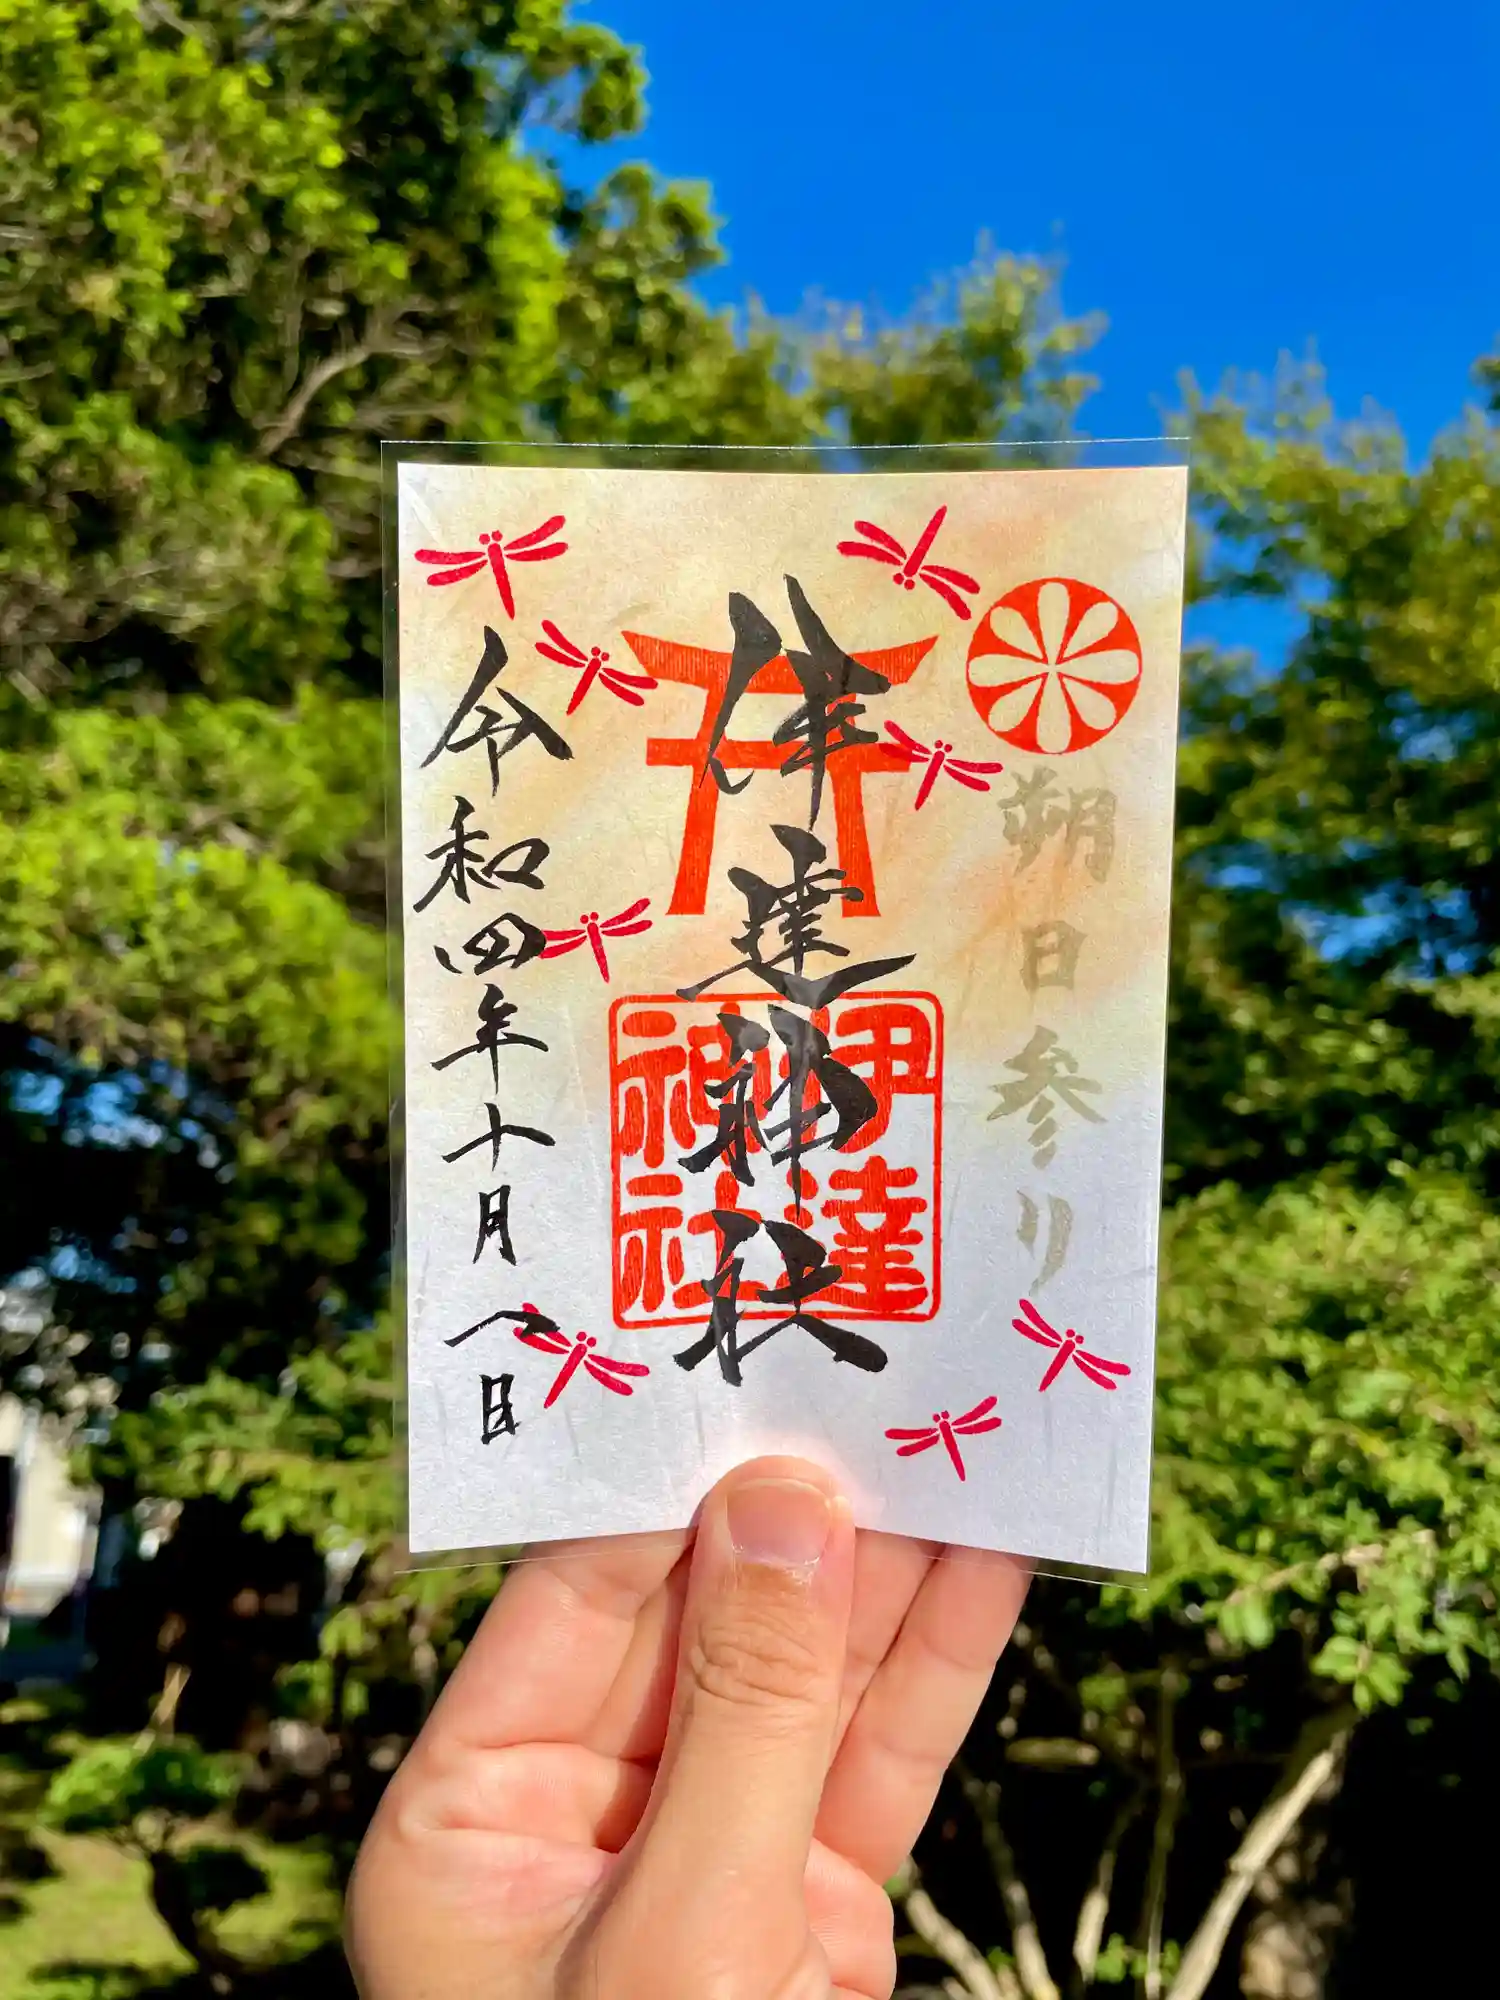 朔日参り
伊達神社
伊達神社
令和四年十月一日